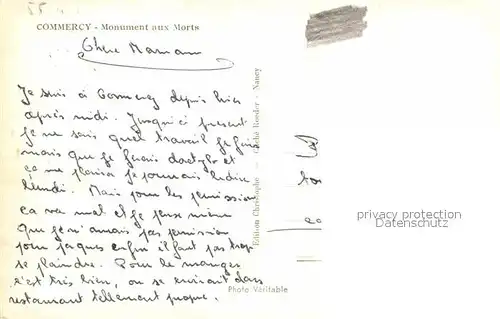 55
COMMERCY - Monument aux Morts
Chere Maman
Je suis à Commercy depuis hier
après midi. Jusqu'ici present
je ne sais quel travail je fais
mais que je ferais dactylo et
ça me plaira je pourrais le dire
lundi. Mais pour les permission
ça va mal et je pense même
que j'ai amais pas permission
pour paques enfin il faut pas trop
se plaindre. Pour le manger
c'est très bien, on se croirait dans
restaurant tellement propre.
Edition Christophe — Cliché Roeder - Nancy
Photo Véritable
privacy protection
Datenschutz